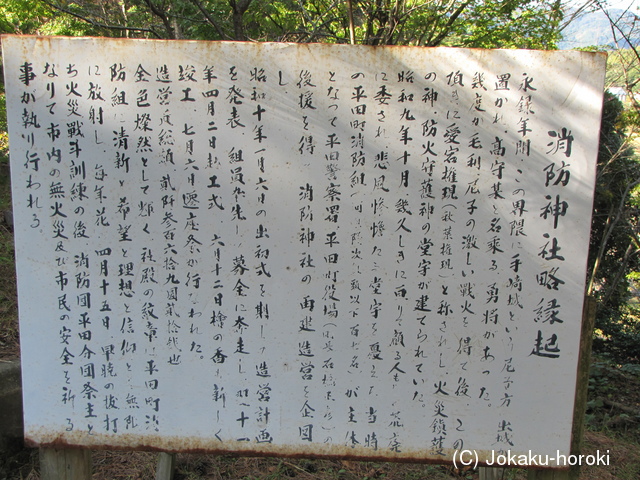 消防神社略縁起
永禄年間、この界隈に手崎城という尼子方の出城が
置かれ、高守某と名乗る勇将があった。
幾度か毛利、尼子の激しい戦火を得て後、この
頂きに愛宕権現(秋葉権現)と称されし火災鎮護
の神、防火守護神の堂宇が建てられていた。
昭和九年十月、幾久しきに亘りて顧る人もなく荒廃
に委され、悲風惨憺たる堂宇を憂えた当時
の平田町消防組が主体
となって平田警察署、平田町役場の
後援を得、消防神社の再建造営を企図
し、
昭和十年一月六日の出初式を期して造営計画
を発表、組員率先し募金に奔走し、
年四月二日起工式、六月十二日檜の香も新しく
竣工、七月六日遷座祭が行なわれた。
造営費総額、貳阡参百六拾九圓貳拾銭也
金色燦然として輝く社殿の紋章は平田町消
防組に清新と希望と理想と信仰を無限
に放射し、毎年花の四月十五日、早暁の抜打
ち火災戦斗訓練の後、消防団平田分団祭主と
なりて市内の無火災及び市民の安全を祈る
事が執り行われる。
(C) Jokaku-horoki